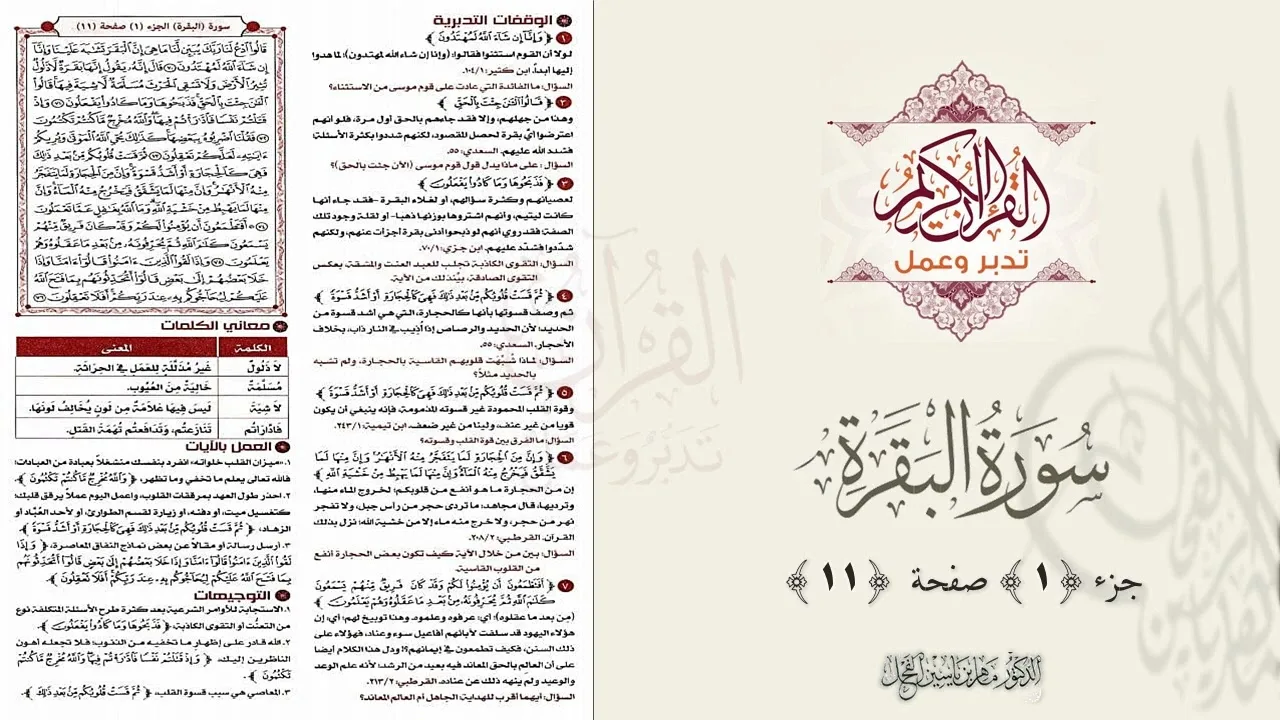 سورة (البقرة) الجزء (١) صفحة (١١)
قَالُوا ادْعُ لَنَا رَبَّكَ يُبَيِّن لَّنَا مَا هِيَ إِنَّ الْبَقَرَ تَشَابَهَ عَلَيْنَا وَإِنَّا
إِن شَاءَ اللَّهُ لَمُهْتَدُونَ ٧٠ قَالَ إِنَّهُ يَقُولُ إِنَّهَا بَقَرَةٌ لَّا ذَلُولٌ
تُثِيرُ الْأَرْضَ وَلَا تَسْقِي الْحَرْثَ مُسَلَّمَةٌ لَّا شِيَةَ فِيهَا قَالُوا
الْآنَ جِئْتَ بِالْحَقِّ فَذَبَحُوهَا وَمَا كَادُوا يَفْعَلُونَ ٧١ وَإِذْ
قَتَلْتُمْ نَفْسًا فَادَّارَأْتُمْ فِيهَا وَاللَّهُ مُخْرِجٌ مَّا كُنتُمْ تَكْتُمُونَ
٧٢ فَقُلْنَا اضْرِبُوهُ بِبَعْضِهَا كَذَٰلِكَ يُحْيِي اللَّهُ الْمَوْتَىٰ وَيُرِيكُمْ
آيَاتِهِ لَعَلَّكُمْ تَعْقِلُونَ ٧٣ ثُمَّ قَسَتْ قُلُوبُكُم مِّن بَعْدِ ذَٰلِكَ
فَهِيَ كَالْحِجَارَةِ أَوْ أَشَدُّ قَسْوَةً وَإِنَّ مِنَ الْحِجَارَةِ لَمَا يَتَفَجَّرُ
مِنْهُ الْأَنْهَارُ وَإِنَّ مِنْهَا لَمَا يَشَّقَّقُ فَيَخْرُجُ مِنْهُ الْمَاءُ وَإِنَّ
مِنْهَا لَمَا يَهْبِطُ مِنْ خَشْيَةِ اللَّهِ وَمَا اللَّهُ بِغَافِلٍ عَمَّا تَعْمَلُونَ
٧٤ أَفَتَطْمَعُونَ أَن يُؤْمِنُوا لَكُمْ وَقَدْ كَانَ فَرِيقٌ مِّنْهُمْ
يَسْمَعُونَ كَلَامَ اللَّهِ ثُمَّ يُحَرِّفُونَهُ مِن بَعْدِ مَا عَقَلُوهُ وَهُمْ
يَعْلَمُونَ ٧٥ وَإِذَا لَقُوا الَّذِينَ آمَنُوا قَالُوا آمَنَّا وَإِذَا
خَلَا بَعْضُهُمْ إِلَىٰ بَعْضٍ قَالُوا أَتُحَدِّثُونَهُم بِمَا فَتَحَ اللَّهُ
عَلَيْكُمْ لِيُحَاجُّوكُم بِهِ عِندَ رَبِّكُمْ أَفَلَا تَعْقِلُونَ ٧٦
معاني الكلمات
الكلمة المعنى
لَا ذَلُولٌ غَيْرُ مُذَلَّلَةٍ لِلْعَمَلِ فِي الحِرَاثَةِ.
مُسَلَّمَةٌ خَالِيَةٌ مِنَ العُيُوبِ.
لَا شِيَةَ لَيْسَ فِيهَا عَلَامَةٌ مِن لَوْنٍ يُخَالِفُ لَوْنَهَا.
فَادَّارَأْتُمْ تَنَازَعْتُم، وَتَدَافَعْتُم تُهْمَةَ القَتْلِ.
العمل بالآيات
١. «ميزان القلب خلواته» انفرد بنفسك منشغلاً بعبادة من العبادات؛
فالله تعالى يعلم ما تخفي وما تظهر، ﴿ وَاللَّهُ مُخْرِجٌ مَّا كُنتُمْ تَكْتُمُونَ ﴾.
٢. احذر طول العهد بمرققات القلوب، واعمل اليوم عملاً يرقق قلبك؛
كتغسيل ميت، أو دفنه، أو زيارة لقسم الطوارئ، أو لأحد العُبَّاد أو
الزهاد، ﴿ ثُمَّ قَسَتْ قُلُوبُكُم مِّن بَعْدِ ذَٰلِكَ فَهِيَ كَالْحِجَارَةِ أَوْ أَشَدُّ قَسْوَةً ﴾.
٣. أرسل رسالة أو مقالاً عن بعض نماذج النفاق المعاصرة، ﴿ وَإِذَا
لَقُوا الَّذِينَ آمَنُوا قَالُوا آمَنَّا وَإِذَا خَلَا بَعْضُهُمْ إِلَىٰ بَعْضٍ قَالُوا أَتُحَدِّثُونَهُم
بِمَا فَتَحَ اللَّهُ عَلَيْكُمْ لِيُحَاجُّوكُم بِهِ عِندَ رَبِّكُمْ أَفَلَا تَعْقِلُونَ ﴾
التوجيهات
١. الاستجابة للأوامر الشرعية بعد كثرة طرح الأسئلة المتكلفة نوع
من التعنُّت أو التقوى الكاذبة، ﴿ فَذَبَحُوهَا وَمَا كَادُوا يَفْعَلُونَ ﴾.
٢. الله قادر على إظهار ما تخفيه من الذنوب؛ فلا تجعله أهون
الناظرين إليك، ﴿ وَإِذْ قَتَلْتُمْ نَفْسًا فَادَّارَأْتُمْ فِيهَا وَاللَّهُ مُخْرِجٌ مَّا كُنتُمْ
تَكْتُمُونَ ﴾.
٣. المعاصي هي سبب قسوة القلب، ﴿ ثُمَّ قَسَتْ قُلُوبُكُم مِّن بَعْدِ ذَٰلِكَ ﴾.
الوقفات التدبرية
١ ﴿ وَإِنَّا إِن شَاءَ اللَّهُ لَمُهْتَدُونَ ﴾
لولا أن القوم استثنوا فقالوا: (وإنا إن شاء الله لمهتدون)؛ لما هدوا
إليها أبداً. ابن كثير: ١/١٠٤.
السؤال: ما الفائدة التي عادت على قوم موسى من الاستثناء؟
٢ ﴿ قَالُوا الْآنَ جِئْتَ بِالْحَقِّ ﴾
وهذا من جهلهم، وإلا فقد جاءهم بالحق أول مرة، فلو أنهم
اعترضوا أيَّ بقرة لحصل المقصود، لكنهم شددوا بكثرة الأسئلة؛
فشدد الله عليهم. السعدي: ٥٥.
السؤال: على ماذا يدل قول قوم موسى (الآن جئت بالحق)؟
٣ ﴿ فَذَبَحُوهَا وَمَا كَادُوا يَفْعَلُونَ ﴾
لعصيانهم وكثرة سؤالهم، أو لغلاء البقرة –فقد جاء أنها
كانت ليتيم، وأنهم اشتروها بوزنها ذهبا– أو لقلة وجود تلك
الصفة؛ فقد روي أنهم لو ذبحوا أدنى بقرة أجزأت عنهم، ولكنهم
شدّدوا فشُدّد عليهم. ابن جزي: ١/٧٠.
السؤال: التقوى الكاذبة تجلب للعبد العنت والمشقة، بعكس
التقوى الصادقة، بيِّن ذلك من الآية.
٤ ﴿ ثُمَّ قَسَتْ قُلُوبُكُم مِّن بَعْدِ ذَٰلِكَ فَهِيَ كَالْحِجَارَةِ أَوْ أَشَدُّ قَسْوَةً ﴾
ثم وصف قسوتها بأنها كالحجارة، التي هي أشد قسوة من
الحديد؛ لأن الحديد والرصاص إذا أُذيب في النار ذاب، بخلاف
الأحجار. السعدي: ٥٥.
السؤال: لماذا شُبِّهَت قلوبهم القاسية بالحجارة، ولم تشبه
بالحديد مثلاً؟
٥ ﴿ ثُمَّ قَسَتْ قُلُوبُكُم مِّن بَعْدِ ذَٰلِكَ فَهِيَ كَالْحِجَارَةِ أَوْ أَشَدُّ قَسْوَةً ﴾
وقوة القلب المحمودة غير قسوته المذمومة، فإنه ينبغي أن يكون
قويا من غير عنف، ولينا من غير ضعف. ابن تيمية: ١/٢٤٣.
السؤال: ما الفرق بين قوة القلب وقسوته؟
٦ ﴿ وَإِنَّ مِنَ الْحِجَارَةِ لَمَا يَتَفَجَّرُ مِنْهُ الْأَنْهَارُ وَإِنَّ مِنْهَا لَمَا
يَشَّقَّقُ فَيَخْرُجُ مِنْهُ الْمَاءُ وَإِنَّ مِنْهَا لَمَا يَهْبِطُ مِنْ خَشْيَةِ اللَّهِ ﴾
إن من الحجارة ما هو أنفع من قلوبكم؛ لخروج الماء منها،
وترديها، قال مجاهد: ما تردى حجر من رأس جبل، ولا تفجر
نهر من حجر، ولا خرج منه ماء إلا من خشية الله؛ نزل بذلك
القرآن. القرطبي: ٢/٢٠٨.
السؤال: بين من خلال الآية كيف تكون بعض الحجارة أنفع
من القلوب القاسية.
٧ ﴿ أَفَتَطْمَعُونَ أَن يُؤْمِنُوا لَكُمْ وَقَدْ كَانَ فَرِيقٌ مِّنْهُمْ يَسْمَعُونَ
كَلَامَ اللَّهِ ثُمَّ يُحَرِّفُونَهُ مِن بَعْدِ مَا عَقَلُوهُ وَهُمْ يَعْلَمُونَ ﴾
(مِن بعد ما عقلوه)؛ أي: عرفوه وعلموه. وهذا توبيخ لهم؛ أي: إن
هؤلاء اليهود قد سلفت لآبائهم أفاعيل سوء وعناد، فهؤلاء على
ذلك السنن، فكيف تطمعون في إيمانهم؟! ودل هذا الكلام أيضا
على أن العالِم بالحق المعاند فيه بعيد من الرشد؛ لأنه علم الوعد
والوعيد ولم ينهه ذلك عن عناده. القرطبي: ٢/٢١٣.
السؤال: أيهما أقرب للهداية الجاهل أم العالم المعاند؟
القرآن الكريم
تدبر وعمل
سُورَةُ البَقَرَةِ
جزء ﴿١﴾ صفحة ﴿١١﴾
الدكتور ماهر بن ياسين الفحل